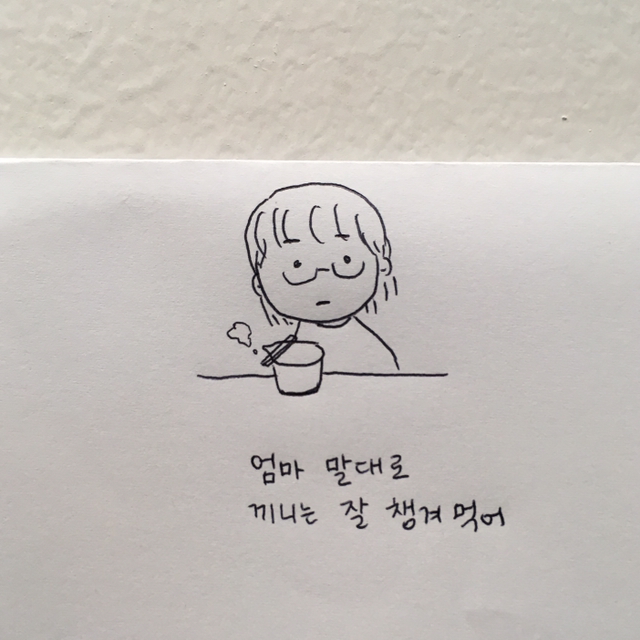 엄마 말대로
끼니는 잘 챙겨 먹어